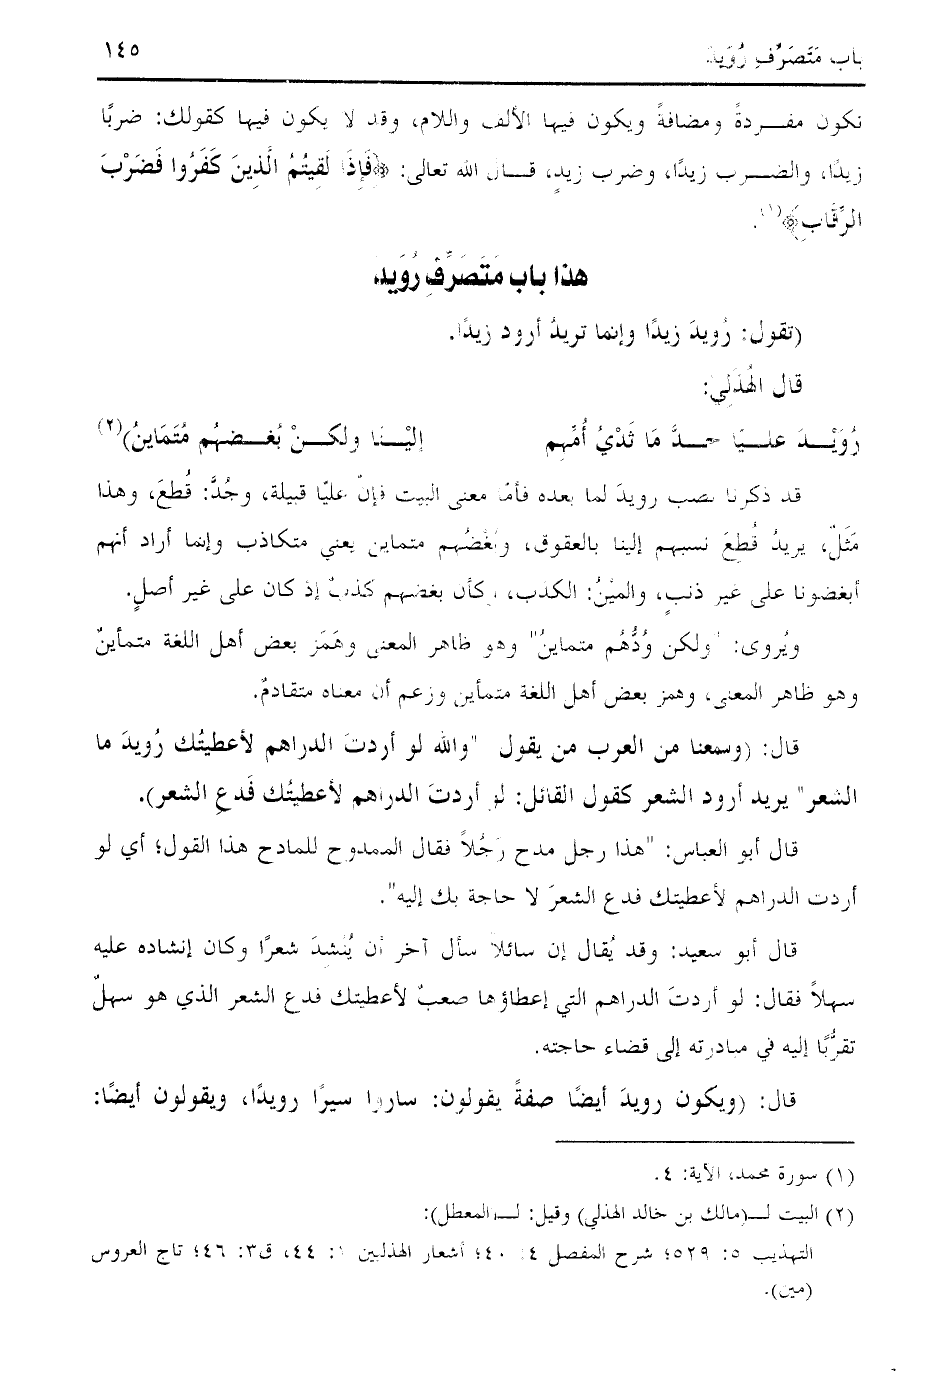 باب مَتَصَرَّفِ رُوَيدَ
١٤٥
تكون مفردةً ومضافةً ويكون فيها الألف واللام، وقد لا يكون فيها كقولك: ضربًا
زيدًا، والضرب زيدًا، وضرب زيدٍ، قال الله تعالى: ﴿فَإِذَا لَقِيتُمُ الَّذِينَ كَفَرُوا فَضَرْبَ
الرِّقَابِ﴾(١).
هذا باب مَتَصَرَّفِ رُوَيدَ
(تقول: رُويدَ زيدًا وإنما تريدُ أرود زيدًا.
قال الهُذَلِيّ:
رُوَيْدَ عليًا جدَّ مَا ثَدْيُ أُمِّهِم إليْنَا ولكنْ بُغضهُم مُتَمَاينُ)(٢)
قد ذكرنا نصب رويدَ لما بعده فأمّا معنى البيت فإنّ عليًا قبيلة، وجُدَّ: قُطعَ، وهذا
مَثَلٌ، يريدُ قُطِعَ نسبهم إلينا بالعقوق، وبُغْضُهم متماين يعني متكاذب وإنما أراد أنهم
أبغضونا على غير ذنب، والميْنُ: الكذب، وكأن بغضهم كذبٌ إذ كان على غير أصلٍ.
ويُروى: "ولكن وُدُّهُم متماينُ" وهو ظاهر المعنى وهَمَز بعض أهل اللغة متمأينٌ
وهو ظاهر المعنى، وهمز بعض أهل اللغة متمأين وزعم أن معناه متقادمٌ.
قال: (وسمعنا من العرب من يقول "والله لو أردتَ الدراهم لأعطيتُك رُويدَ ما
الشعر" يريد أرود الشعر كقول القائل: لو أردتَ الدراهم لأعطيتُك فَدعِ الشعر).
قال أبو العباس: "هذا رجل مدح رَجُلاً فقال الممدوح للمادح هذا القول؛ أي لو
أردت الدراهم لأعطيتك فدع الشعرَ لا حاجة بك إليه".
قال أبو سعيد: وقد يُقال إن سائلاً سأل آخر أن يُنشدَ شعرًا وكان إنشاده عليه
سهلاً فقال: لو أردتَ الدراهم التي إعطاؤها صعبٌ لأعطيتك فدع الشعر الذي هو سهلٌ
تقرُّبًا إليه في مبادرته إلى قضاء حاجته.
قال: (ويكون رويدَ أيضًا صفةً يقولون: ساروا سيرًا رويدًا، ويقولون أيضًا:
(١) سورة محمد، الآية: ٤.
(٢) البيت لـ(مالك بن خالد الهذلي) وقيل: لـ(المعطل):
التهذيب ٥: ٥٢٩؛ شرح المفصل ٤: ٤٠؛ أشعار الهذليين ١: ٤٤، ق٣: ٤٦؛ تاج العروس
(مين).